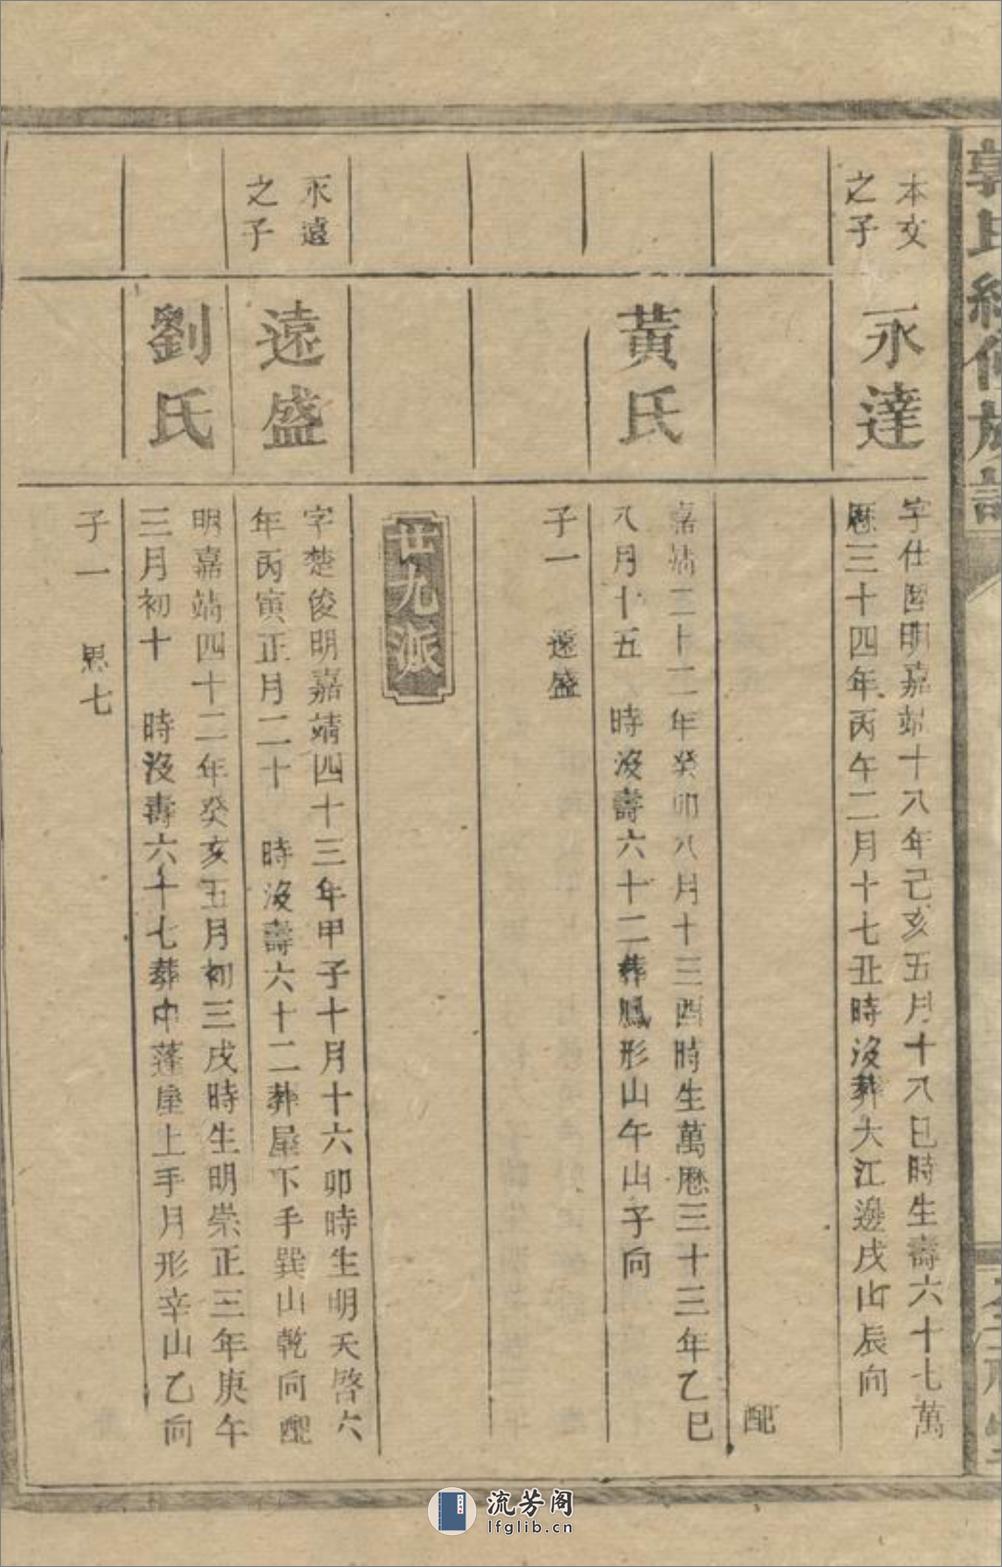 郭氏續修族譜
本文
之子
永達
字仕国明嘉靖十八年己亥五月十八巳時生壽六十七萬
曆三十四年丙午二月十七丑時沒葬大江邊戌山辰向
配
黃氏
嘉靖二十二年癸卯八月十三酉時生萬曆三十三年乙巳
八月十五 時沒壽六十二葬鳳形山午山子向
子一 遠盛
廿九派
永遠
之子
遠盛
字楚俊明嘉靖四十三年甲子十月十六卯時生明天啓六
年丙寅正月二十 時沒壽六十二葬屋下手巽山乾向配
劉氏
明嘉靖四十二年癸亥五月初三戌時生明崇正三年庚午
三月初十 時沒壽六十七葬中蓬屋上手月形辛山乙向
子一 思七
流芳阁
lfglib.cn